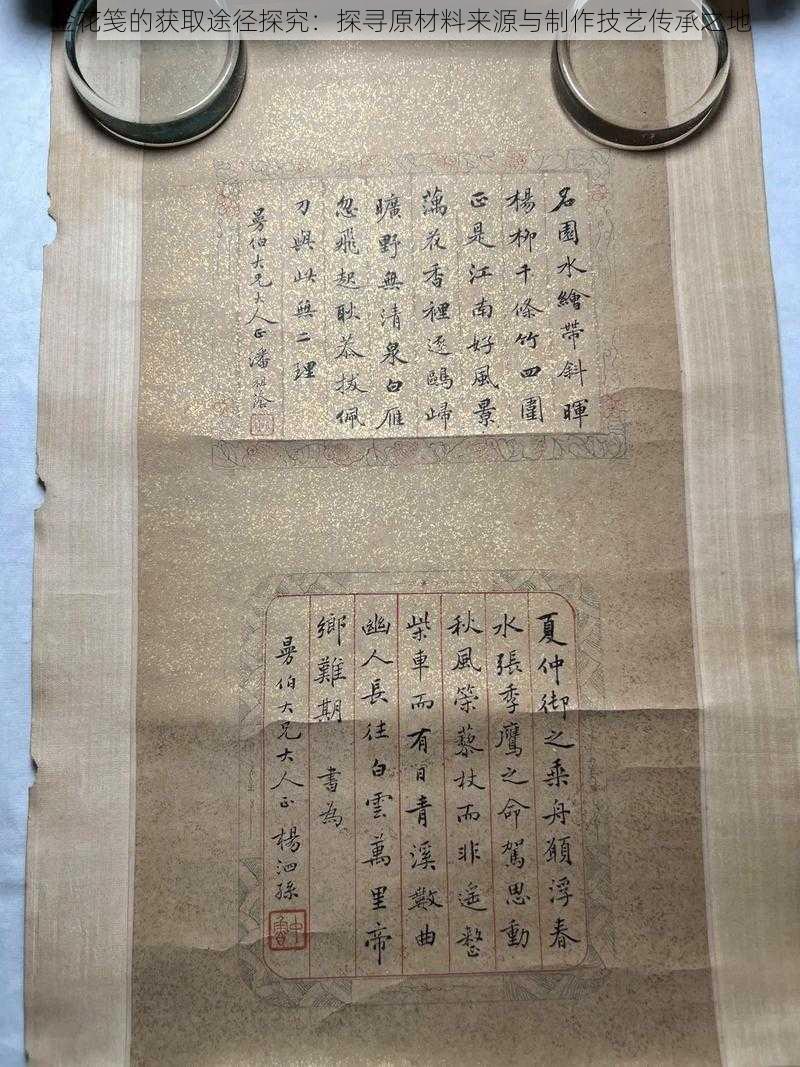 金花笺的获取途径探究：探寻原材料来源与制作技艺传承之地
名園水繪帶斜暉
楊柳千條竹四圍
正是江南好風景
藕花香裡鷗歸
曠野無清泉白雁
忽飛起耿恭拔佩
刀與此無二理
曼伯大兄大人正 潘
夏仲御之乘舟願浮春
水張季鷹之命駕思動
秋風策藜杖而非遙整
柴車而有日青溪數曲
幽人長往白雲萬里帝
鄉難期 書為
曼伯大兄大人正 楊泗孫